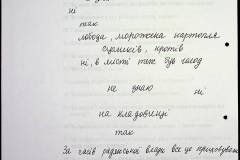 ні
так
лобода, морожена картопля
їжачків, кротів
ні, в місті теж був голод
не знаю
ні
на кладовищі
так
За часів радянської влади все це приховували